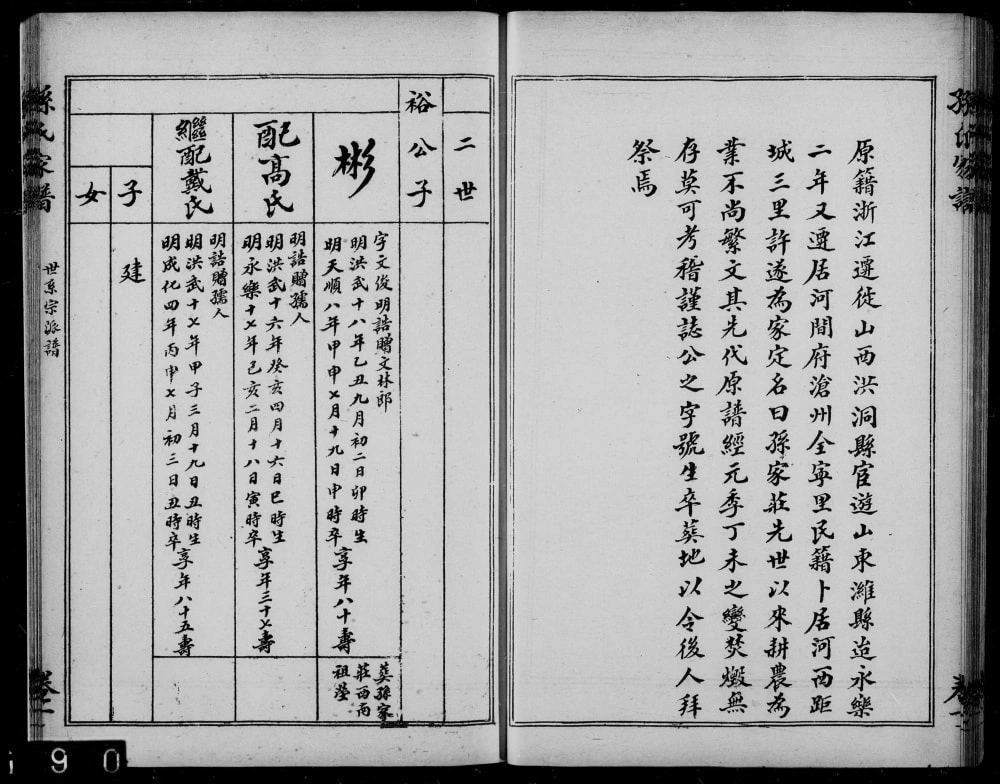 原籍浙江遷徙山西洪洞縣官遊山東濰縣迨永樂
二年又遷居河間府滄州全寧里民籍卜居河西距
城三里許遂為家定名曰孫家莊先世以來耕農為
業不尚繁文其先代原譜經元季丁未之變焚燬無
存莫可考稽謹誌公之字號生卒葬地以令後人拜
祭焉
二世
裕公子
彬
字文俊明誥贈文林郎
明洪武十八年乙丑九月初二日卯時生
明天順八年甲申七月十九日申時卒
享年八十壽
葬孫家
莊西南
祖塋
配高氏
明誥贈孺人
明洪武十六年癸亥四月十六日巳時生
明永樂十七年己亥二月十八日寅時卒
享年三十七壽
繼配戴氏
明誥贈孺人
明洪武十七年甲子三月十九日丑時生
明成化四年丙申七月初三日丑時卒
享年八十五壽
子
建
女
孫氏家譜
世系宗派譜
卷二
090